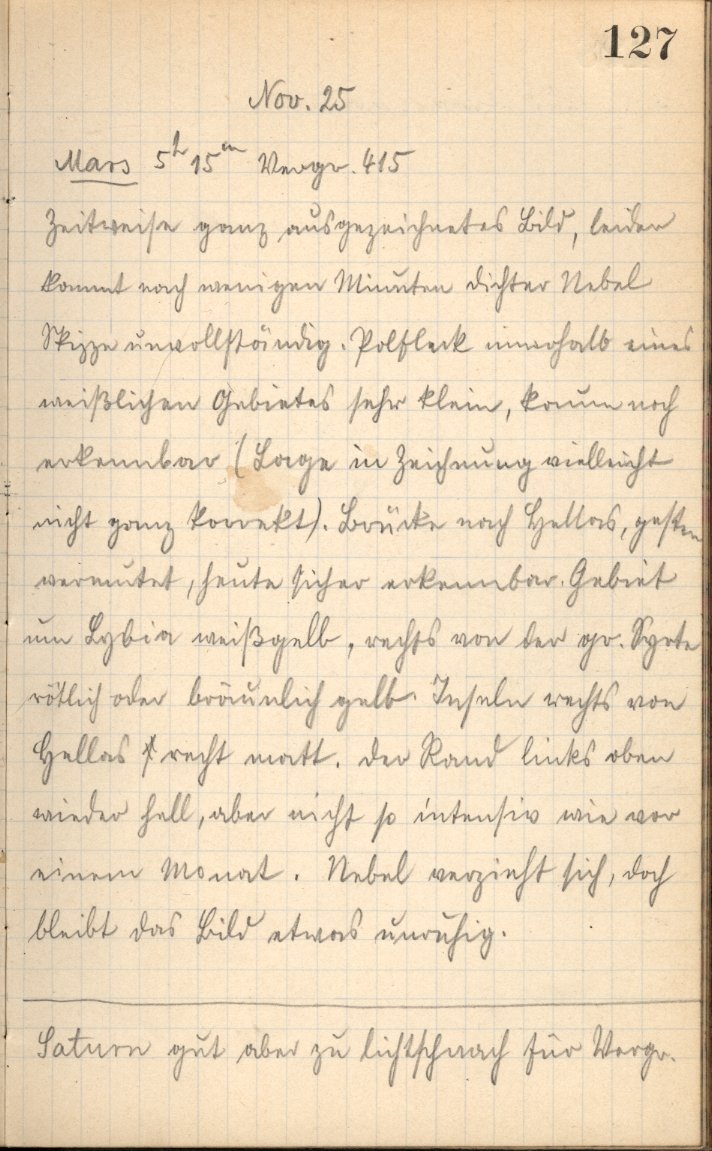 127
Nov. 25
Mars 5h 15m Vergr. 415
Zeitweise ganz ausgezeichnetes Bild, leider
kommt nach wenigen Minuten dichter Nebel
Skizze unvollständig. Polfleck innerhalb eines
weißlichen Gebietes sehr klein, kaum noch
erkennbar (Lage in Zeichnung vielleicht
nicht ganz korrekt). Brücke nach Hellas, gestern
vermutet, heute sicher erkennbar. Gebiet
um Lybia weißgelb, rechts von der gr. Syrte
rötlich oder bräunlich gelb. Inseln rechts von
Hellas recht matt. Der Rand links oben
wieder hell, aber nicht so intensiv wie vor
einem Monat. Nebel verzieht sich, doch
bleibt das Bild etwas unruhig.
Saturn gut aber zu lichtschwach für Vergr.